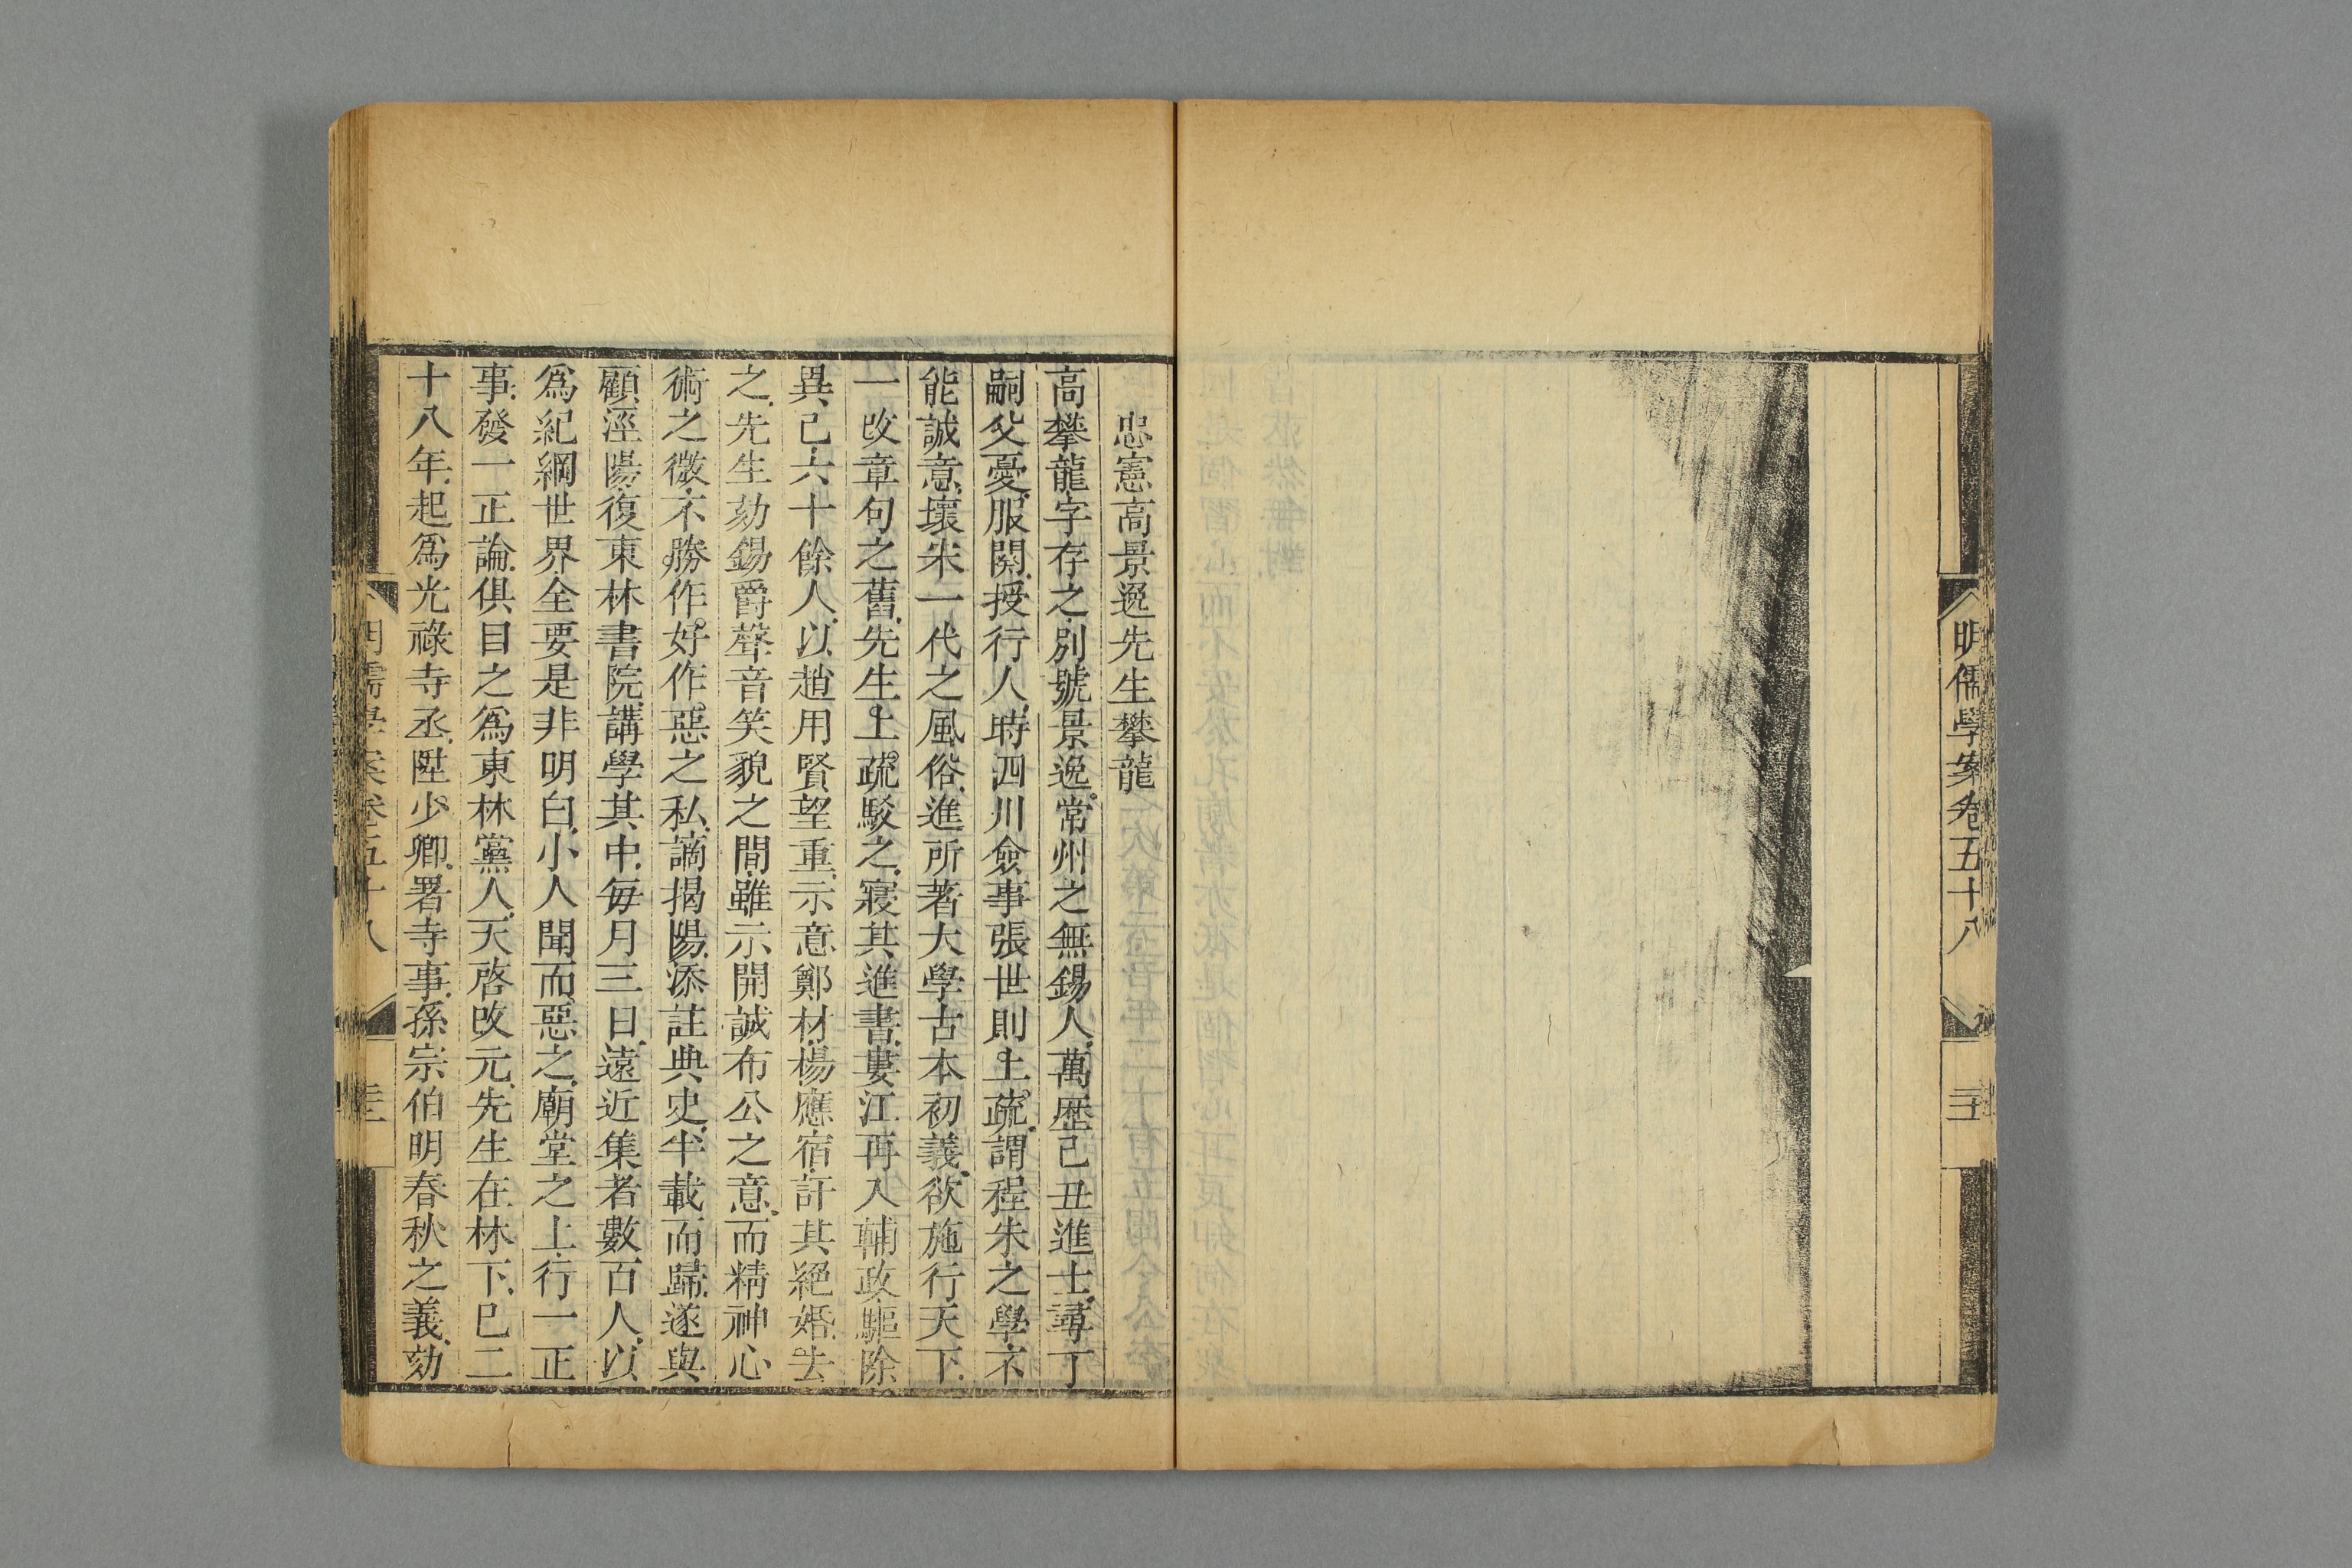 明儒學案卷五十八
忠憲高景逸先生攀龍
高攀龍字存之別號景逸常州之無錫人萬歴己丑進士尋丁
嗣父憂服闋授行人時四川僉事張世則上疏謂程朱之學不
能誠意壞宋一代之風俗進所著大學古本初義欲施行天下
一改章句之舊先生上疏駁之寢其進書婁江再入輔政驅除
異己六十餘人以趙用賢望重示意鄭材楊應宿訐其絕婚去
之先生劾錫爵聲音笑貌之間雖示開誠布公之意而精神心
術之微不勝作好作惡之私謫揭陽添註典史半載而歸遂與
顧涇陽復東林書院講學其中每月三日遠近集者數百人以
爲紀綱世界全要是非明白小人聞而惡之廟堂之上行一正
事發一正論俱目之爲東林黨人天啓改元先生在林下已二
十八年起爲光祿寺丞陞少卿署寺事孫宗伯明春秋之義劾